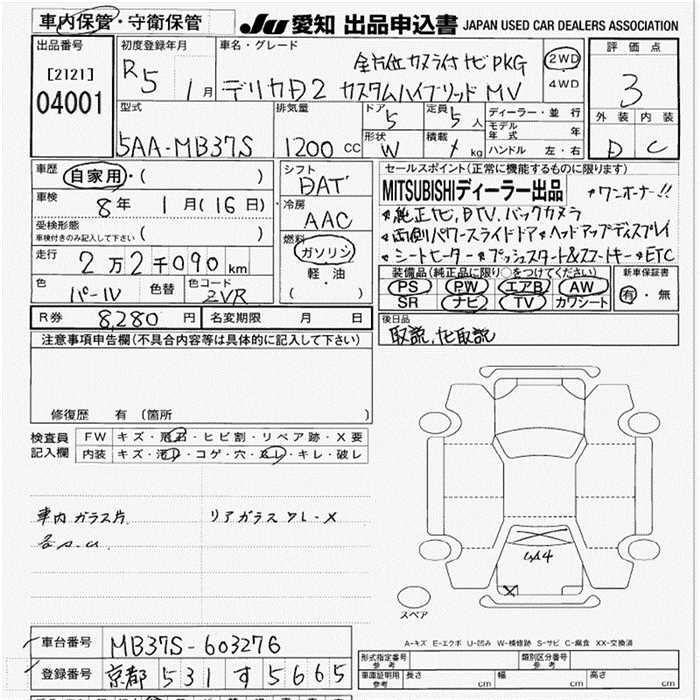 車内保管・守衛保管
JU 愛知 出品申込書 JAPAN USED CAR DEALERS ASSOCIATION
出品番号
[2121]
04001
初度登録年月
R5 1月
車名・グレード
全方位カメラ付ナビPKG
デリカD2 カスタムハイブリッドMV
2WD
4WD
評価点
3
外装 内装
D C
型式
5AA-MB37S
排気量
1200 CC
ドア
5
定員
5人
形状
W
積載
kg
ディーラー・並行
モデル年式 年
ハンドル 左・右
車歴
自家用・( )
車検
8年 1月(16日)
受検形態
車検付きのみ記入して下さい ( )
走行
2万2千090km
色
パール
色替
色コード
ZVR
シフト
DAT
冷房
AAC
燃料
ガソリン
軽・油
( )
セールスポイント(正常に機能するものに限ります)
MITSUBISHIディーラー出品 *ワンオーナー!!
*純正ナビ,DTV,バックカメラ
*両側パワースライドドア *ヘッドアップディスプレイ
*シートヒーター *プッシュスタート&スマートキー *ETC
装備品(純正品に限り○をつけてください) 新車保証書
PS PW エアB AW 有・無
SR ナビ TV カワシート
R券 8,280円 名変期限 月 日
後日品
取説,ナビ取説
注意事項申告欄(不具合内容等は具体的に記入して下さい)
修復歴 有 (箇所 )
検査員記入欄
FW キズ・飛石・ヒビ割・リペア跡・X要
内装 キズ・汚レ・コゲ・穴・スレ・キレ・破レ
車内ガラス片 リアガラスワレ-X
各
スペア
A-キズ E-エクボ U-凹み W-補修跡 S-サビ C-腐食 XX-交換済
車台番号 MB37S-603276
登録番号 京都 531 す 5665
形式指定番号 参考
類別区分番号 参考
車庫証明用 参考 長さ cm 幅 cm 高さ cm